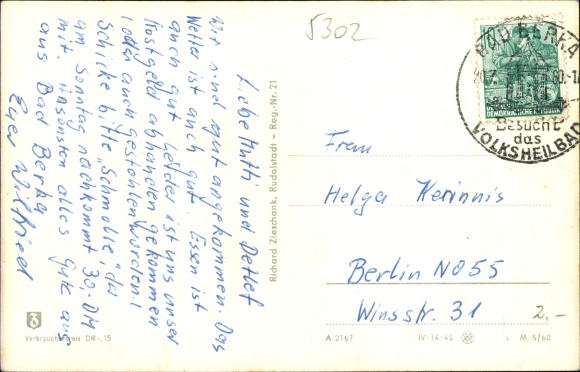 5302
Liebe Mutti und Detlef
Wir sind gut angekommen. Das
Wetter ist auch gut. Essen ist
auch gut. Leider ist uns unser
Postgeld abhanden gekommen
( oder auch gestohlen worden. )
Schicke bitte „Schmolle“, der
am Sonntag nachkommt 30,- DM
mit. Ansonsten alles gute aus
aus Bad Berka
Euer Wilfried
Richard Zieschank, Rudolstadt • Reg.-Nr. 21
BAD BERKA
Besucht
das
VOLKSHEILBAD
Frau
Helga Kerinnis
Berlin NO 55
Winsstr. 31
2.-
Verbraucherpreis DM -,15
A 2167 IV-14-45 M 5/60